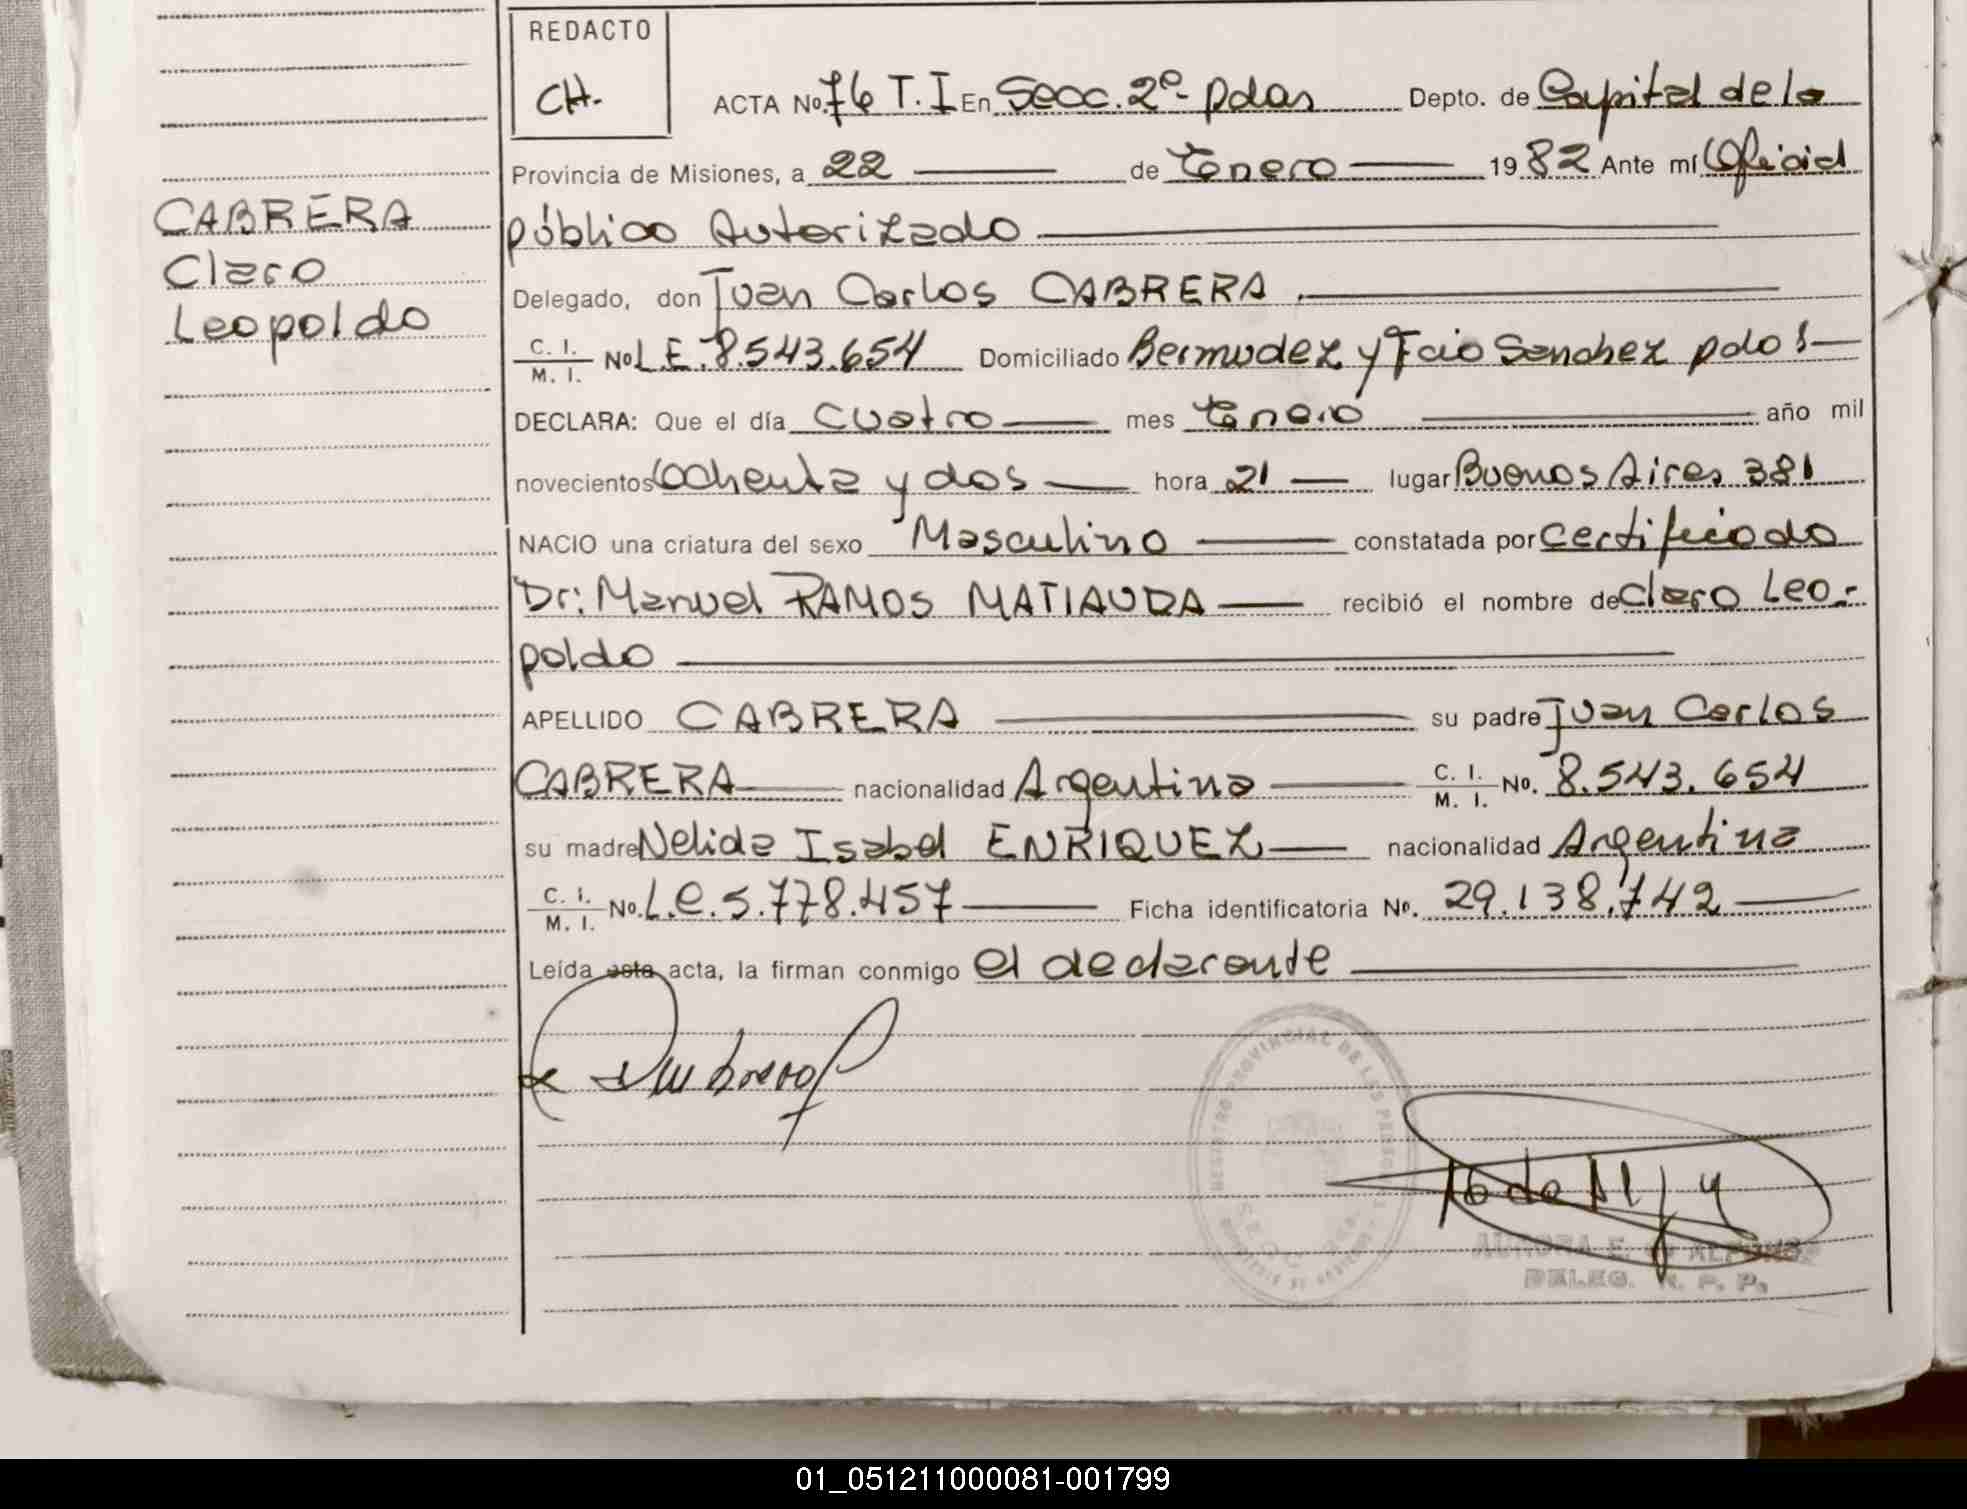 REDACTO
CH.
ACTA No. 76 T.I En Secc. 2ª pdas Depto. de Capital de la
Provincia de Misiones, a 22 de Enero 1982 Ante mí Oficial
público Autorizado
CABRERA
Claro
Leopoldo
Delegado, don Juan Carlos CABRERA
C. I. M. I. No. L.E. 8.543.654 Domiciliado Bermudez y Fcio Sanchez pdas
DECLARA: Que el día cuatro mes Enero año mil
novecientos Ochenta y dos hora 21 lugar Buenos Aires 381
NACIO una criatura del sexo Masculino constatada por certificado
Dr: Manuel RAMOS MATIAUDA recibió el nombre de Claro Leo-
poldo
APELLIDO CABRERA su padre Juan Carlos
CABRERA nacionalidad Argentina C. I. M. I. No. 8.543.654
su madre Nelida Isabel ENRIQUEZ nacionalidad Argentina
C. I. M. I. No. L.C. 5.778.457 Ficha identificatoria No. 29.138.742
Leída esta acta, la firman conmigo el declarante
REGISTRO PROVINCIAL DE LAS PERSONAS
AURORA E. ALFONSO
DELEG. R. P. P.
01_051211000081-001799